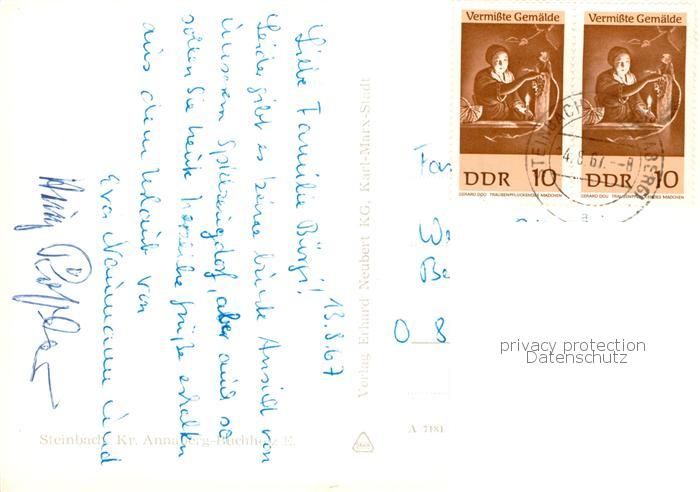 Liebe Familie Bürgi!
13.8.67
Leider gibt es keine bunte Ansicht von
unserem Spielzeugdorf, aber auch so
sollen Sie heute herzliche Grüße erhalten
aus dem Urlaub von
Eva Naumann und
Verlag Erhard Neubert KG, Karl-Marx-Stadt
Steinbach, Kr. Annaberg-Buchholz E.
A 7181
Vermißte Gemälde
DDR 10
GERARD DOU TRAUBENPFLÜCKENDES MÄDCHEN
Vermißte Gemälde
DDR 10
GERARD DOU TRAUBENPFLÜCKENDES MÄDCHEN
STEINBACH
ABERG)
4.8.67.--8
a
Fa
W
Be
O 8
privacy protection
Datenschutz